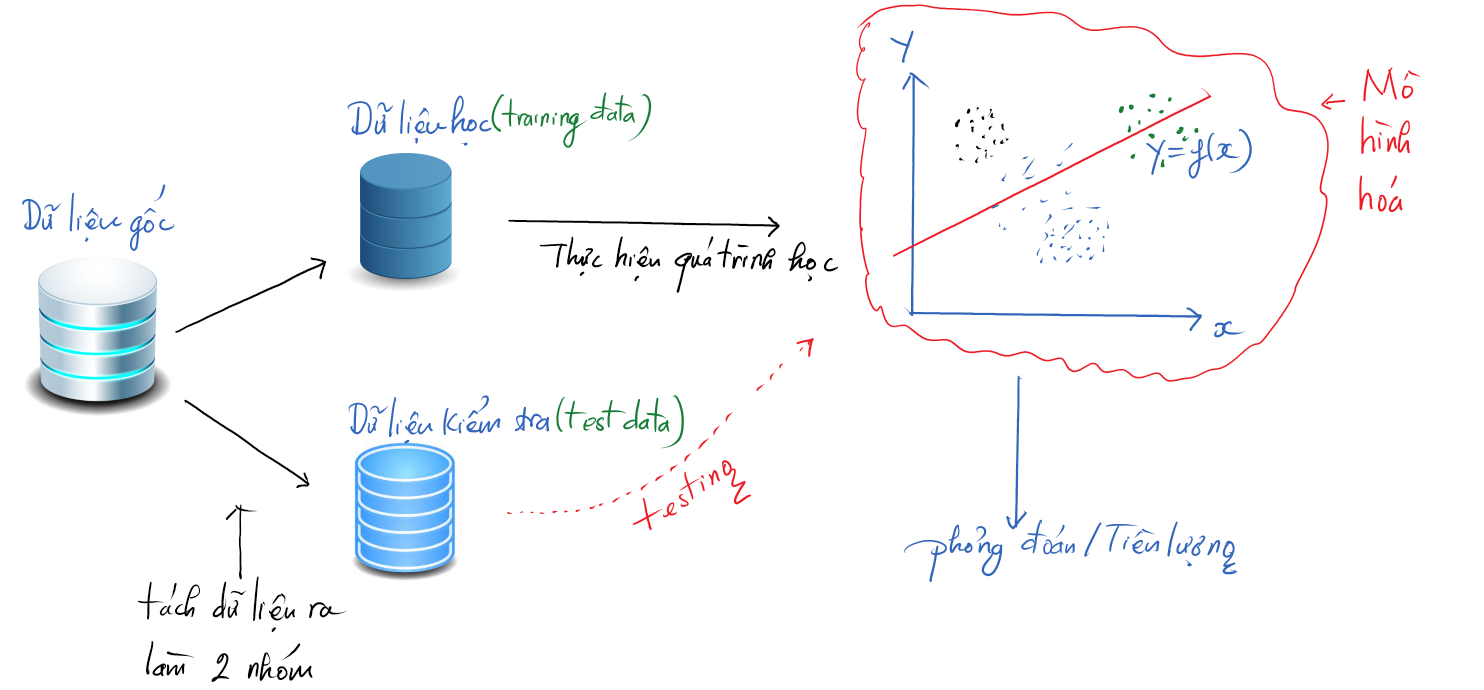 Dữ liệu gốc
Dữ liệu học (training data)
Thực hiện quá trình học
Dữ liệu kiểm tra (test data)
testing
tách dữ liệu ra
làm 2 nhóm
Y
Y=f(x)
x
← Mô
hình
hoá
phỏng đoán / Tiên lượng